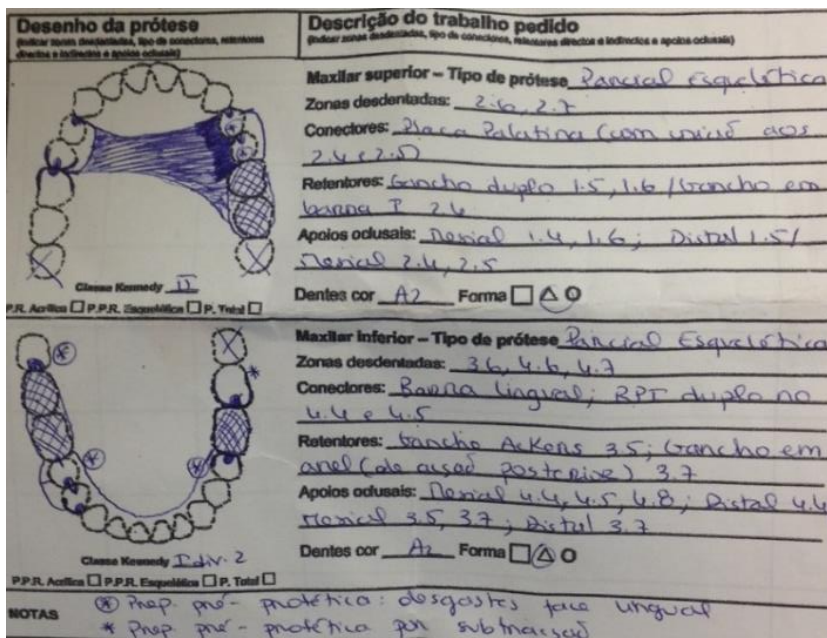 Desenho da prótese
(indicar zonas desdentadas, tipo de conectores, retentores
directos e indirectos e apoios oclusais)
Classe Kennedy II
P.R. Acrílica P.P.R. Esquelética P. Total
Descrição do trabalho pedido
(indicar zonas desdentadas, tipo de conectores, retentores directos e indirectos e apoios oclusais)
Maxilar superior – Tipo de prótese Parcial Esquelética
Zonas desdentadas: 2.6, 2.7
Conectores: Placa Palatina (com união aos
2.4 e 2.5)
Retentores: Gancho duplo 1.5, 1.6 / Gancho em
barra I 2.4
Apoios oclusais: Mesial 1.4, 1.6; Distal 1.5/
Mesial 2.4, 2.5
Dentes cor A2 Forma
Classe Kennedy div. 2
P.P.R. Acrílica P.P.R. Esquelética P. Total
Maxilar inferior – Tipo de prótese Parcial Esquelética
Zonas desdentadas: 36, 4.6, 4.7
Conectores: Barra lingual; RPI duplo no
4.4 e 4.5
Retentores: Gancho Ackers 3.5; Gancho em
anel (de acção posterior) 3.7
Apoios oclusais: Mesial 4.4, 4.5, 4.8; Distal 4.4
Mesial 3.5, 3.7; Distal 3.7
Dentes cor A2 Forma
NOTAS * Prep. pré-protética: desgastes face lingual
* Prep pré-protética por subtracção